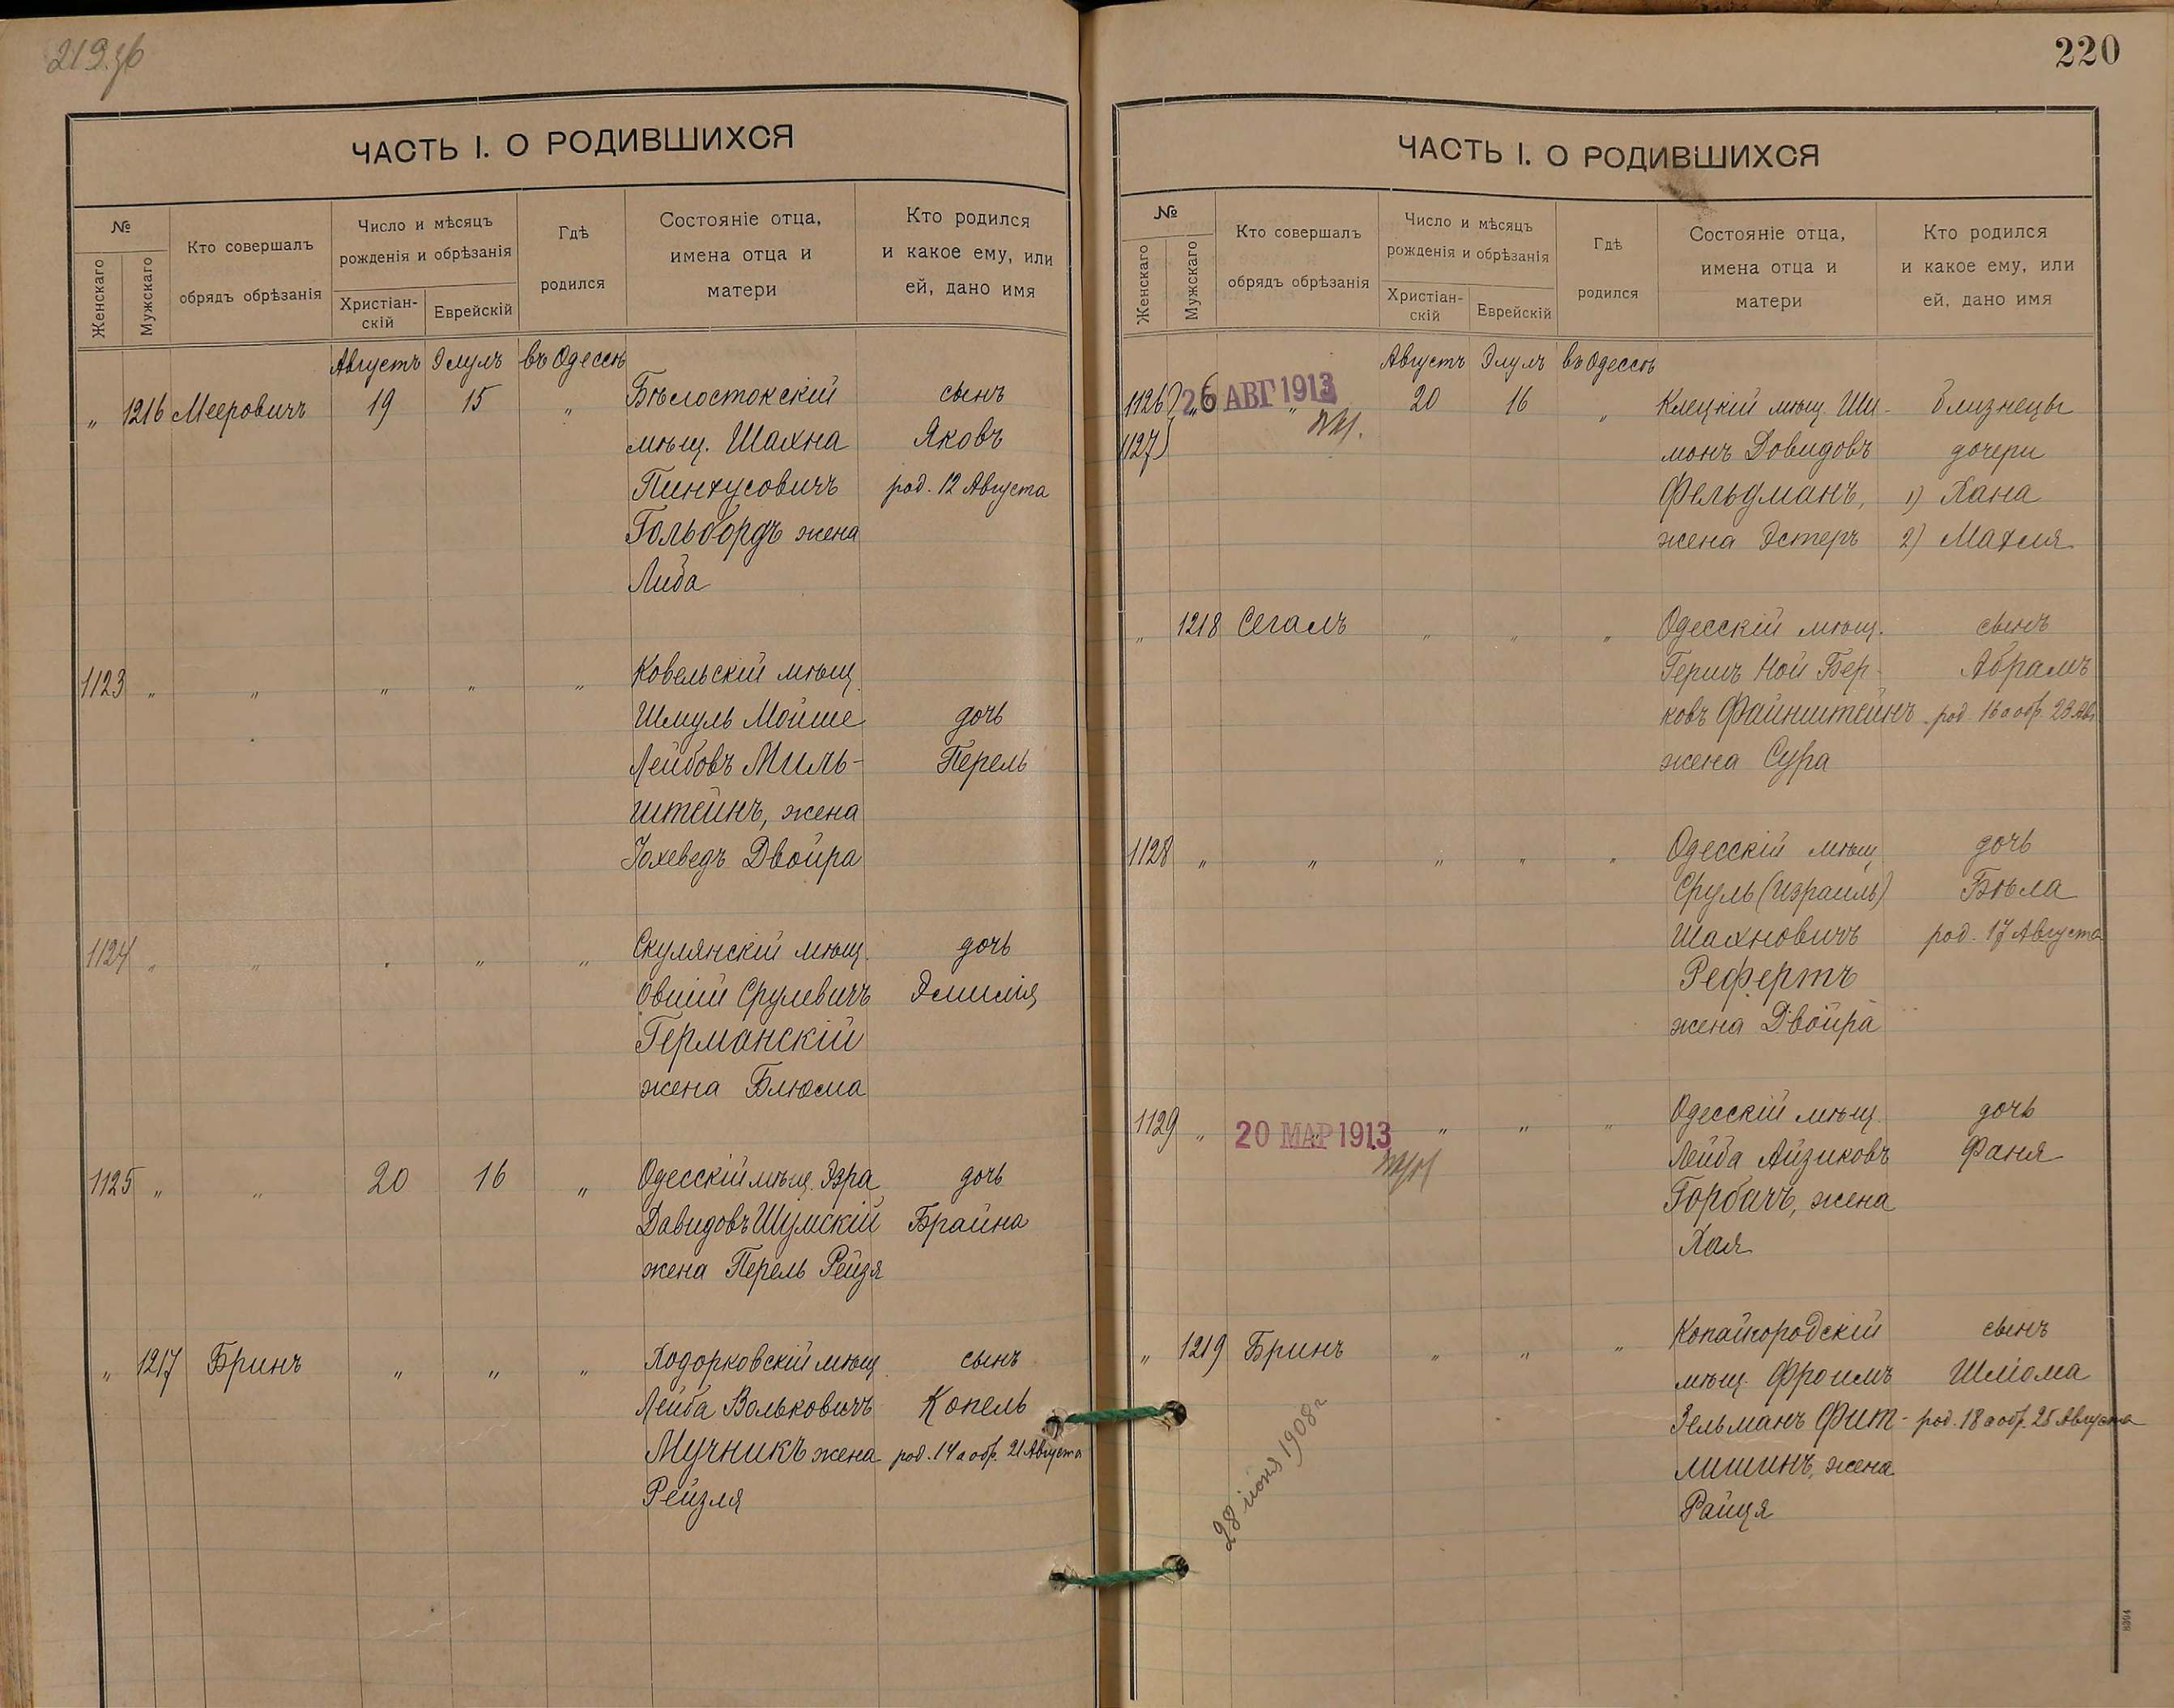 219 об
ЧАСТЬ I. О РОДИВШИХСЯ
№
Женскаго
Мужскаго
Кто совершалъ
обрядъ обрѣзанія
Число и мѣсяцъ
рожденія и обрѣзанія
Христіан-
скій
Еврейскій
Гдѣ
родился
Состояніе отца,
имена отца и
матери
Кто родился
и какое ему, или
ей, дано имя
Августъ Элулъ въ Одессѣ
„ 1216 Мееровичъ 19 15 „ Бѣлостокскій сынъ
мѣщ. Шахна Яковъ
Пинхусовичъ род. 12 Августа
Гольбордъ жена
Либа
1123 „ „ „ „ „ Ковельскій мѣщ.
Шмуль Мойше дочь
Лейбовъ Миль- Перель
штейнъ, жена
Іохеведъ Двойра
1124 „ „ „ „ „ Скулянскій мѣщ. дочь
Овшій Срулевичъ Эмилія
Германскій
жена Блюма
1125 „ „ 20 16 „ Одесскій мѣщ. Эзра дочь
Давидовъ Шумскій Брайна
жена Перель Рейзя
„ 1217 Бринъ „ „ „ Ходорковскій мѣщ. сынъ
Лейба Вольковичъ Копель
Мучникъ жена род. 14 а обр. 21 Августа
Рейзля
220
ЧАСТЬ I. О РОДИВШИХСЯ
№
Женскаго
Мужскаго
Кто совершалъ
обрядъ обрѣзанія
Число и мѣсяцъ
рожденія и обрѣзанія
Христіан-
скій
Еврейскій
Гдѣ
родился
Состояніе отца,
имена отца и
матери
Кто родился
и какое ему, или
ей, дано имя
Августъ Элулъ въ Одессѣ
1126) „ 26 АВГ 1913 „ 20 16 „ Клецкій мѣщ. Ши- близнецы
1127) монъ Довидовъ дочери
Фельдманъ, 1) Хана
жена Эстеръ 2) Махля
„ 1218 Сегалъ „ „ „ Одесскій мѣщ. сынъ
Гершъ Ной Бер- Абрамъ
ковъ Файнштейнъ род. 16 а обр. 23 Авг
жена Сура
1128 „ „ „ „ „ Одесскій мѣщ. дочь
Сруль (Израиль) Бѣла
Шахновичъ род. 17 Августа
Рефертъ
жена Двойра
1129 „ 20 МАР 1913 „ „ „ „ Одесскій мѣщ. дочь
Лейба Айзиковъ Фаня
Горбачъ, жена
Хая
„ 1219 Бринъ „ „ „ Копайгородскій сынъ
мѣщ. Фроимъ Шлiома
Зельманъ Фит- род. 18 а обр. 25 Августа
лишинъ, жена
Райця
28 іюня 1908 г
8394